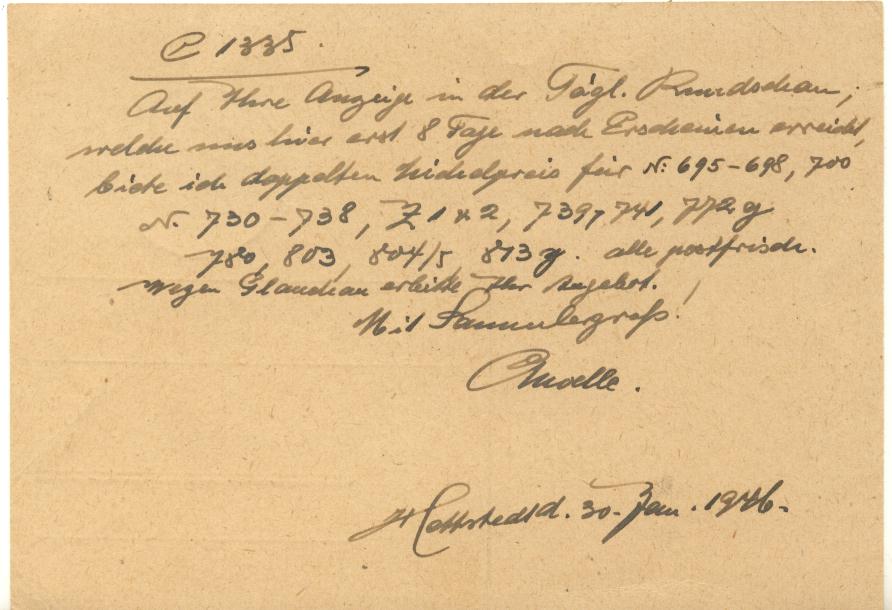 C 1335.
Auf Ihre Anzeige in der Tägl. Rundschau,
welche uns hier erst 8 Tage nach Erscheinen erreicht,
biete ich doppelten Michelpreis für N: 695-698, 700
N. 730-738, Z 1 x 2, 739, 741, 772 g
780, 803, 804/5 813 g. alle postfrisch.
Wegen Glauchau erbitte Ihr Angebot.
Mit Sammlergruß!
Hettstedt d. 30. Jan. 1946.